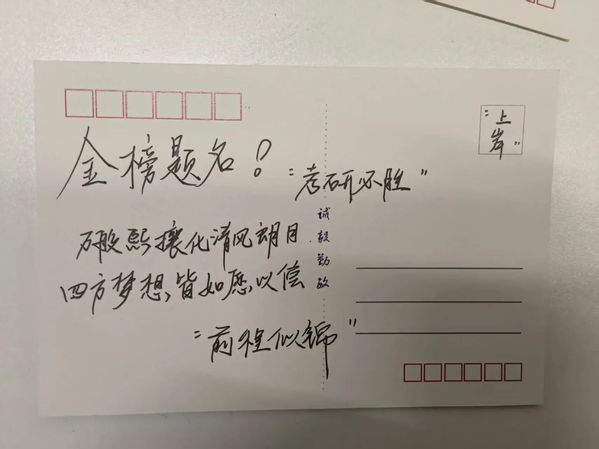 "上岸"
金榜题名!
"考研必胜"
万般熙攘化清风朗月
四方梦想,皆如愿以偿
"前程似锦"
诚毅勤敏